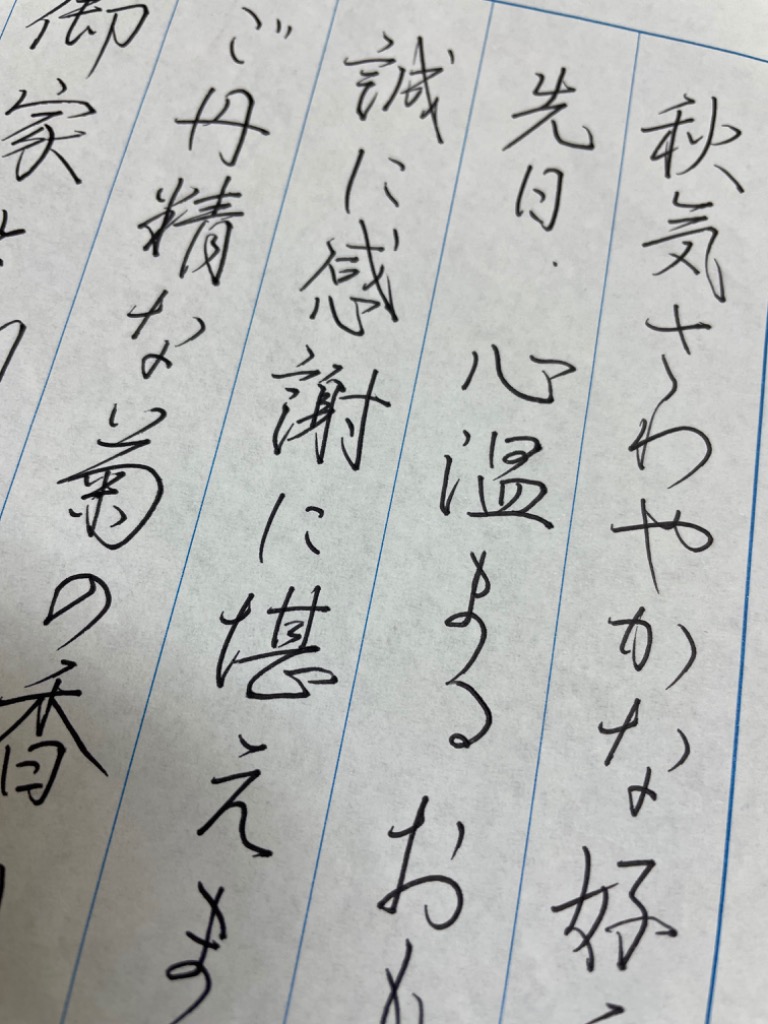 秋気さわやかな好
先日、心温まるお
誠に感謝に堪えま
ご丹精な菊の香
御家